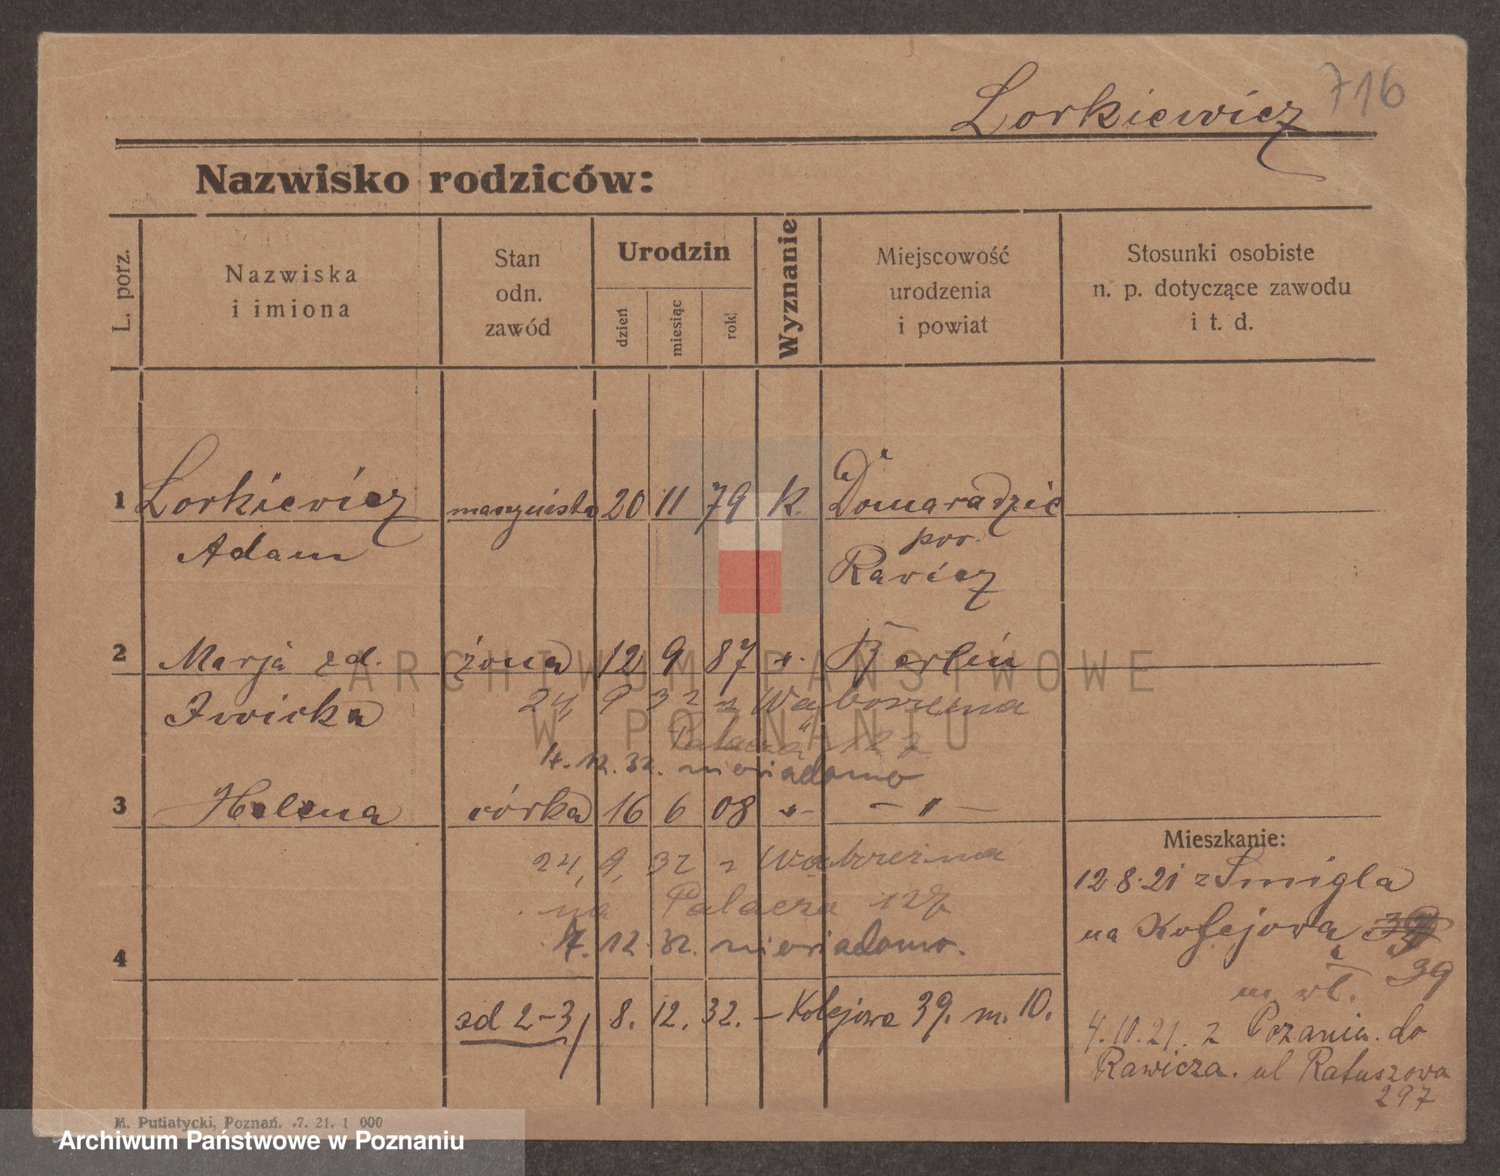 716
Lorkiewicz
Nazwisko rodziców:
L. porz.
Nazwiska
i imiona
Stan
odn.
zawód
Urodzin
dzień
miesiąc
rok
Wyznanie
Miejscowość
urodzenia
i powiat
Stosunki osobiste
n. p. dotyczące zawodu
i t. d.
1 Lorkiewicz maszynista 20 11 79 k. Domaradzic
Adam
pow.
Rawicz
2 Marja zd. żona 12 9 87 Berlin
Iwicka
24 9 32 z Wąbrzeźna
Palacza
4. 12. 32. niewiadomo
3 Helena córka 16 6 08 — " —
24, 9, 32 z Wąbrzeźna
na Palacza
4. 12 32. niewiadomo.
4
ad 2-3/ 8. 12. 32. – Kolejowa 39. m. 10.
Mieszkanie:
12 8. 21 z Śmigla
na Kolejowa
39
m wł.
4. 10. 21. z Pozania. do
Rawicza. ul Ratuszowa
297
M. Putiatycki, Poznań. .7. 21. 1 000
ARCHIWUM PAŃSTWOWE
W POZNANIU
Archiwum Państwowe w Poznaniu